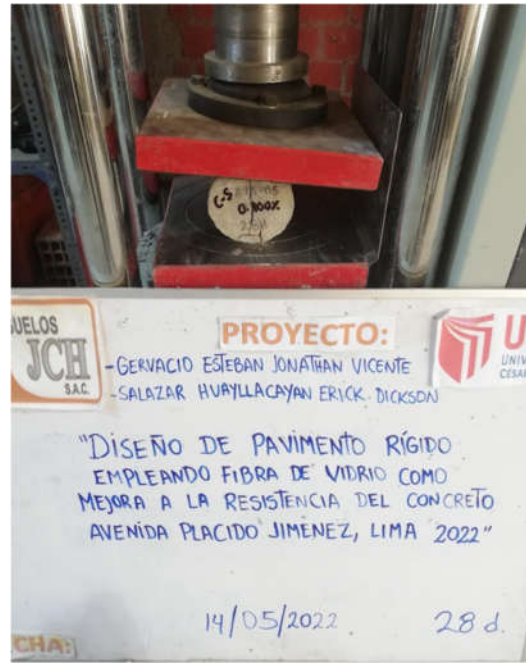 C-5
0.100%
SUELOS
JCH
S.A.C.
PROYECTO:
-GERVACIO ESTEBAN JONATHAN VICENTE
-SALAZAR HUAYLLACAYAN ERICK DICKSON
U
UNIV
CÉSAR
"DISEÑO DE PAVIMENTO RÍGIDO
EMPLEANDO FIBRA DE VIDRIO COMO
MEJORA A LA RESISTENCIA DEL CONCRETO
AVENIDA PLACIDO JIMENEZ, LIMA 2022"
14/05/2022 28 d.
CHA: